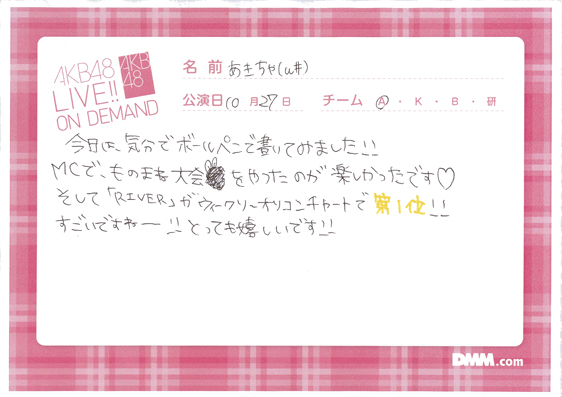 AKB48
LIVE!!
ON DEMAND
AKB
48
名前 あきちゃ(u#)
公演日 10月27日 チーム Ⓐ・K・B・研
今日は、気分でボールペンで書いてみました!!
MCで、ものまね大会をやったのが楽しかったです♡
そして「RIVER」がウィークリーオリコンチャートで第1位!!
すごいですねー!!とっても嬉しいです!!
DMM.com